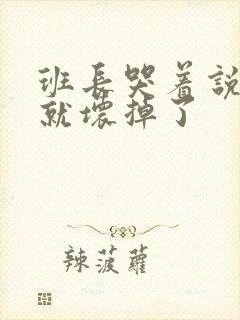 班長哭着說
就壞掉了
辣菠蘿